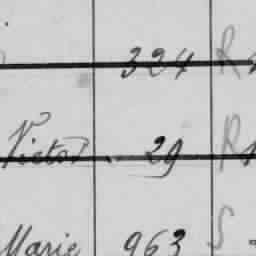 324 R
Victor 29 R
Marie 963 S